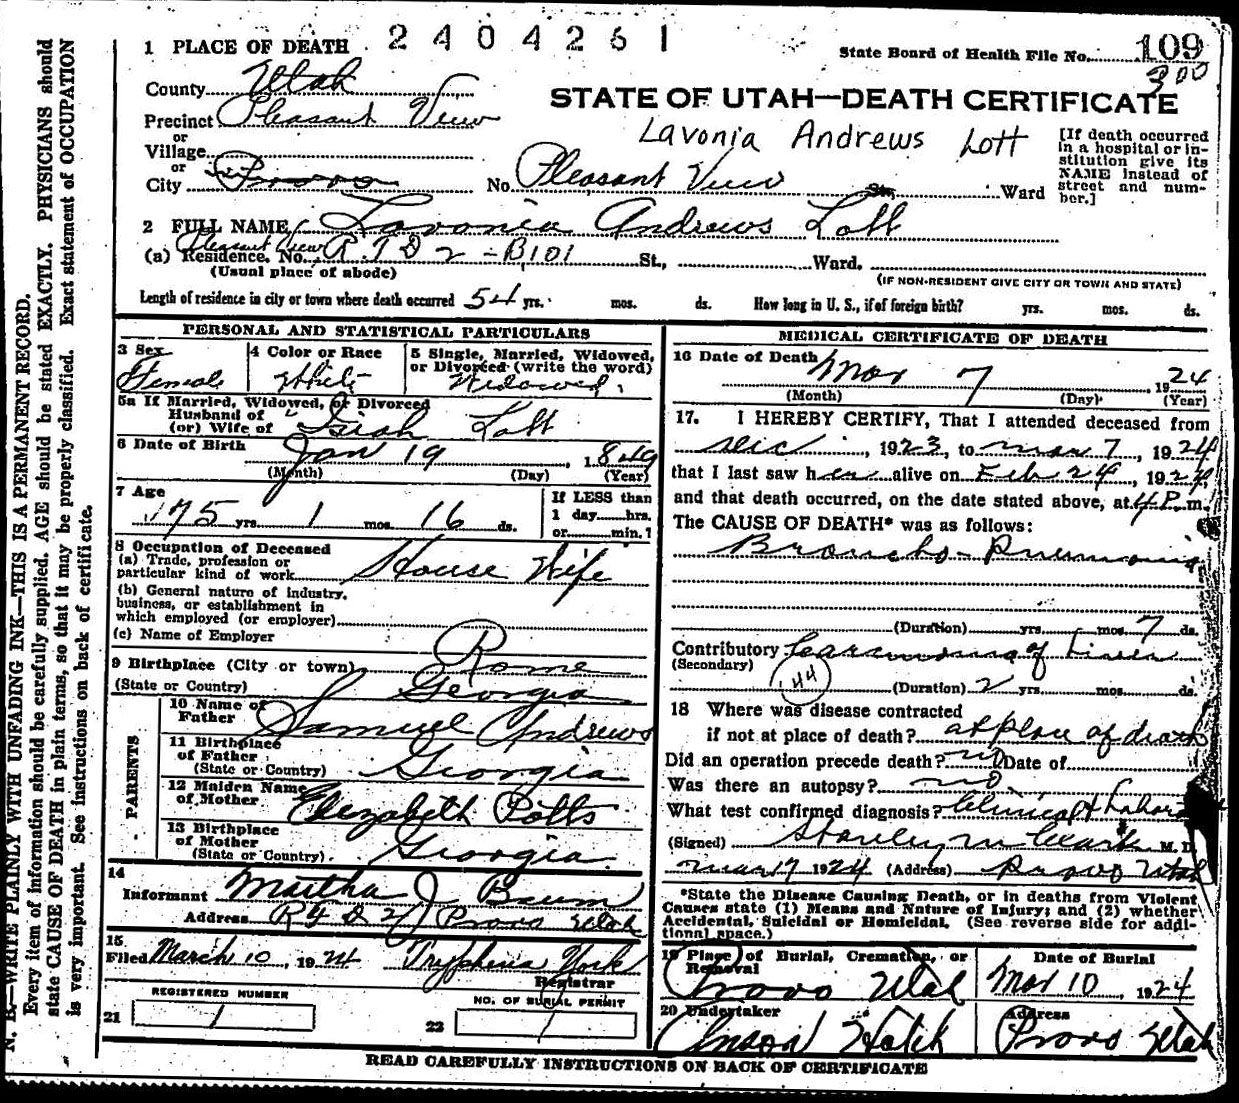 2404261
1 PLACE OF DEATH
State Board of Health File No. 109
300
County Utah
STATE OF UTAH—DEATH CERTIFICATE
Precinct Pleasant View
Lavonia Andrews Lott
or
Village
or
City Provo No. Pleasant View St., Ward
[If death occurred
in a hospital or in-
stitution give its
NAME instead of
street and num-
ber.]
2 FULL NAME Lavonia Andrews Lott
Pleasant View
(a) Residence. No. R. F D 2 - B101 St., Ward.
(Usual place of abode)
(IF NON-RESIDENT GIVE CITY OR TOWN AND STATE)
Length of residence in city or town where death occurred 54 yrs. mos. ds. How long in U. S., if of foreign birth? yrs. mos. ds.
PERSONAL AND STATISTICAL PARTICULARS
3 Sex 4 Color or Race 5 Single, Married, Widowed,
or Divorced (write the word)
Female White Widowed
5a If Married, Widowed, or Divorced
Husband of
(or) Wife of Lott
6 Date of Birth Jan 19, 1849
(Month) (Day) (Year)
7 Age
75 yrs. 1 mos. 16 ds.
If LESS than
1 day hrs.
or min.?
8 Occupation of Deceased
(a) Trade, profession or
particular kind of work House Wife
(b) General nature of industry,
business, or establishment in
which employed (or employer)
(c) Name of Employer
9 Birthplace (City or town) Rome
(State or Country) Georgia
PARENTS
10 Name of
Father Samuel Andrews
11 Birthplace
of Father
(State or Country) Georgia
12 Maiden Name
of Mother Elezabeth Potts
13 Birthplace
of Mother
(State or Country) Georgia
14
Informant Martha J Baum
Address R F D 2 Provo Utah
15
Filed March 10, 1924 Tryphena York
Registrar
REGISTERED NUMBER
21 1
NO. OF BURIAL PERMIT
22 1
MEDICAL CERTIFICATE OF DEATH
16 Date of Death Mar 7 1924
(Month) (Day) (Year)
17. I HEREBY CERTIFY, That I attended deceased from
Dec, 1923, to Mar 7, 1924
that I last saw her alive on Feb 24, 1924,
and that death occurred, on the date stated above, at 4 P. m.
The CAUSE OF DEATH* was as follows:
Broncho-Pneumonia
(Duration) yrs. mos. 7 ds.
Contributory Carcinoma of Liver
(Secondary)
44
(Duration) 2 yrs. mos. ds.
18 Where was disease contracted
if not at place of death? at place of death
Did an operation precede death? no Date of
Was there an autopsy? no
What test confirmed diagnosis? Clinical &
(Signed) Stanley M Clark M. D.
Mar 17 1924 (Address) Provo Utah
*State the Disease Causing Death, or in deaths from Violent
Causes state (1) Means and Nature of Injury; and (2) whether
Accidental, Suicidal or Homicidal. (See reverse side for addi-
tional space.)
19 Place of Burial, Cremation, or
Removal
Provo Utah
Date of Burial
Mar 10, 1924
20 Undertaker
Anson Hatch
Address
Provo Utah
READ CAREFULLY INSTRUCTIONS ON BACK OF CERTIFICATE
N. B.—WRITE PLAINLY WITH UNFADING INK—THIS IS A PERMANENT RECORD.
Every item of information should be carefully supplied. AGE should be stated EXACTLY. PHYSICIANS should
state CAUSE OF DEATH in plain terms, so that it may be properly classified. Exact statement of OCCUPATION
is very important. See instructions on back of certificate.